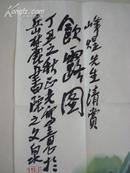 峰煌先生清賞
飲露圖
丁丑之秋正光寫意於
岳麓書院之文泉